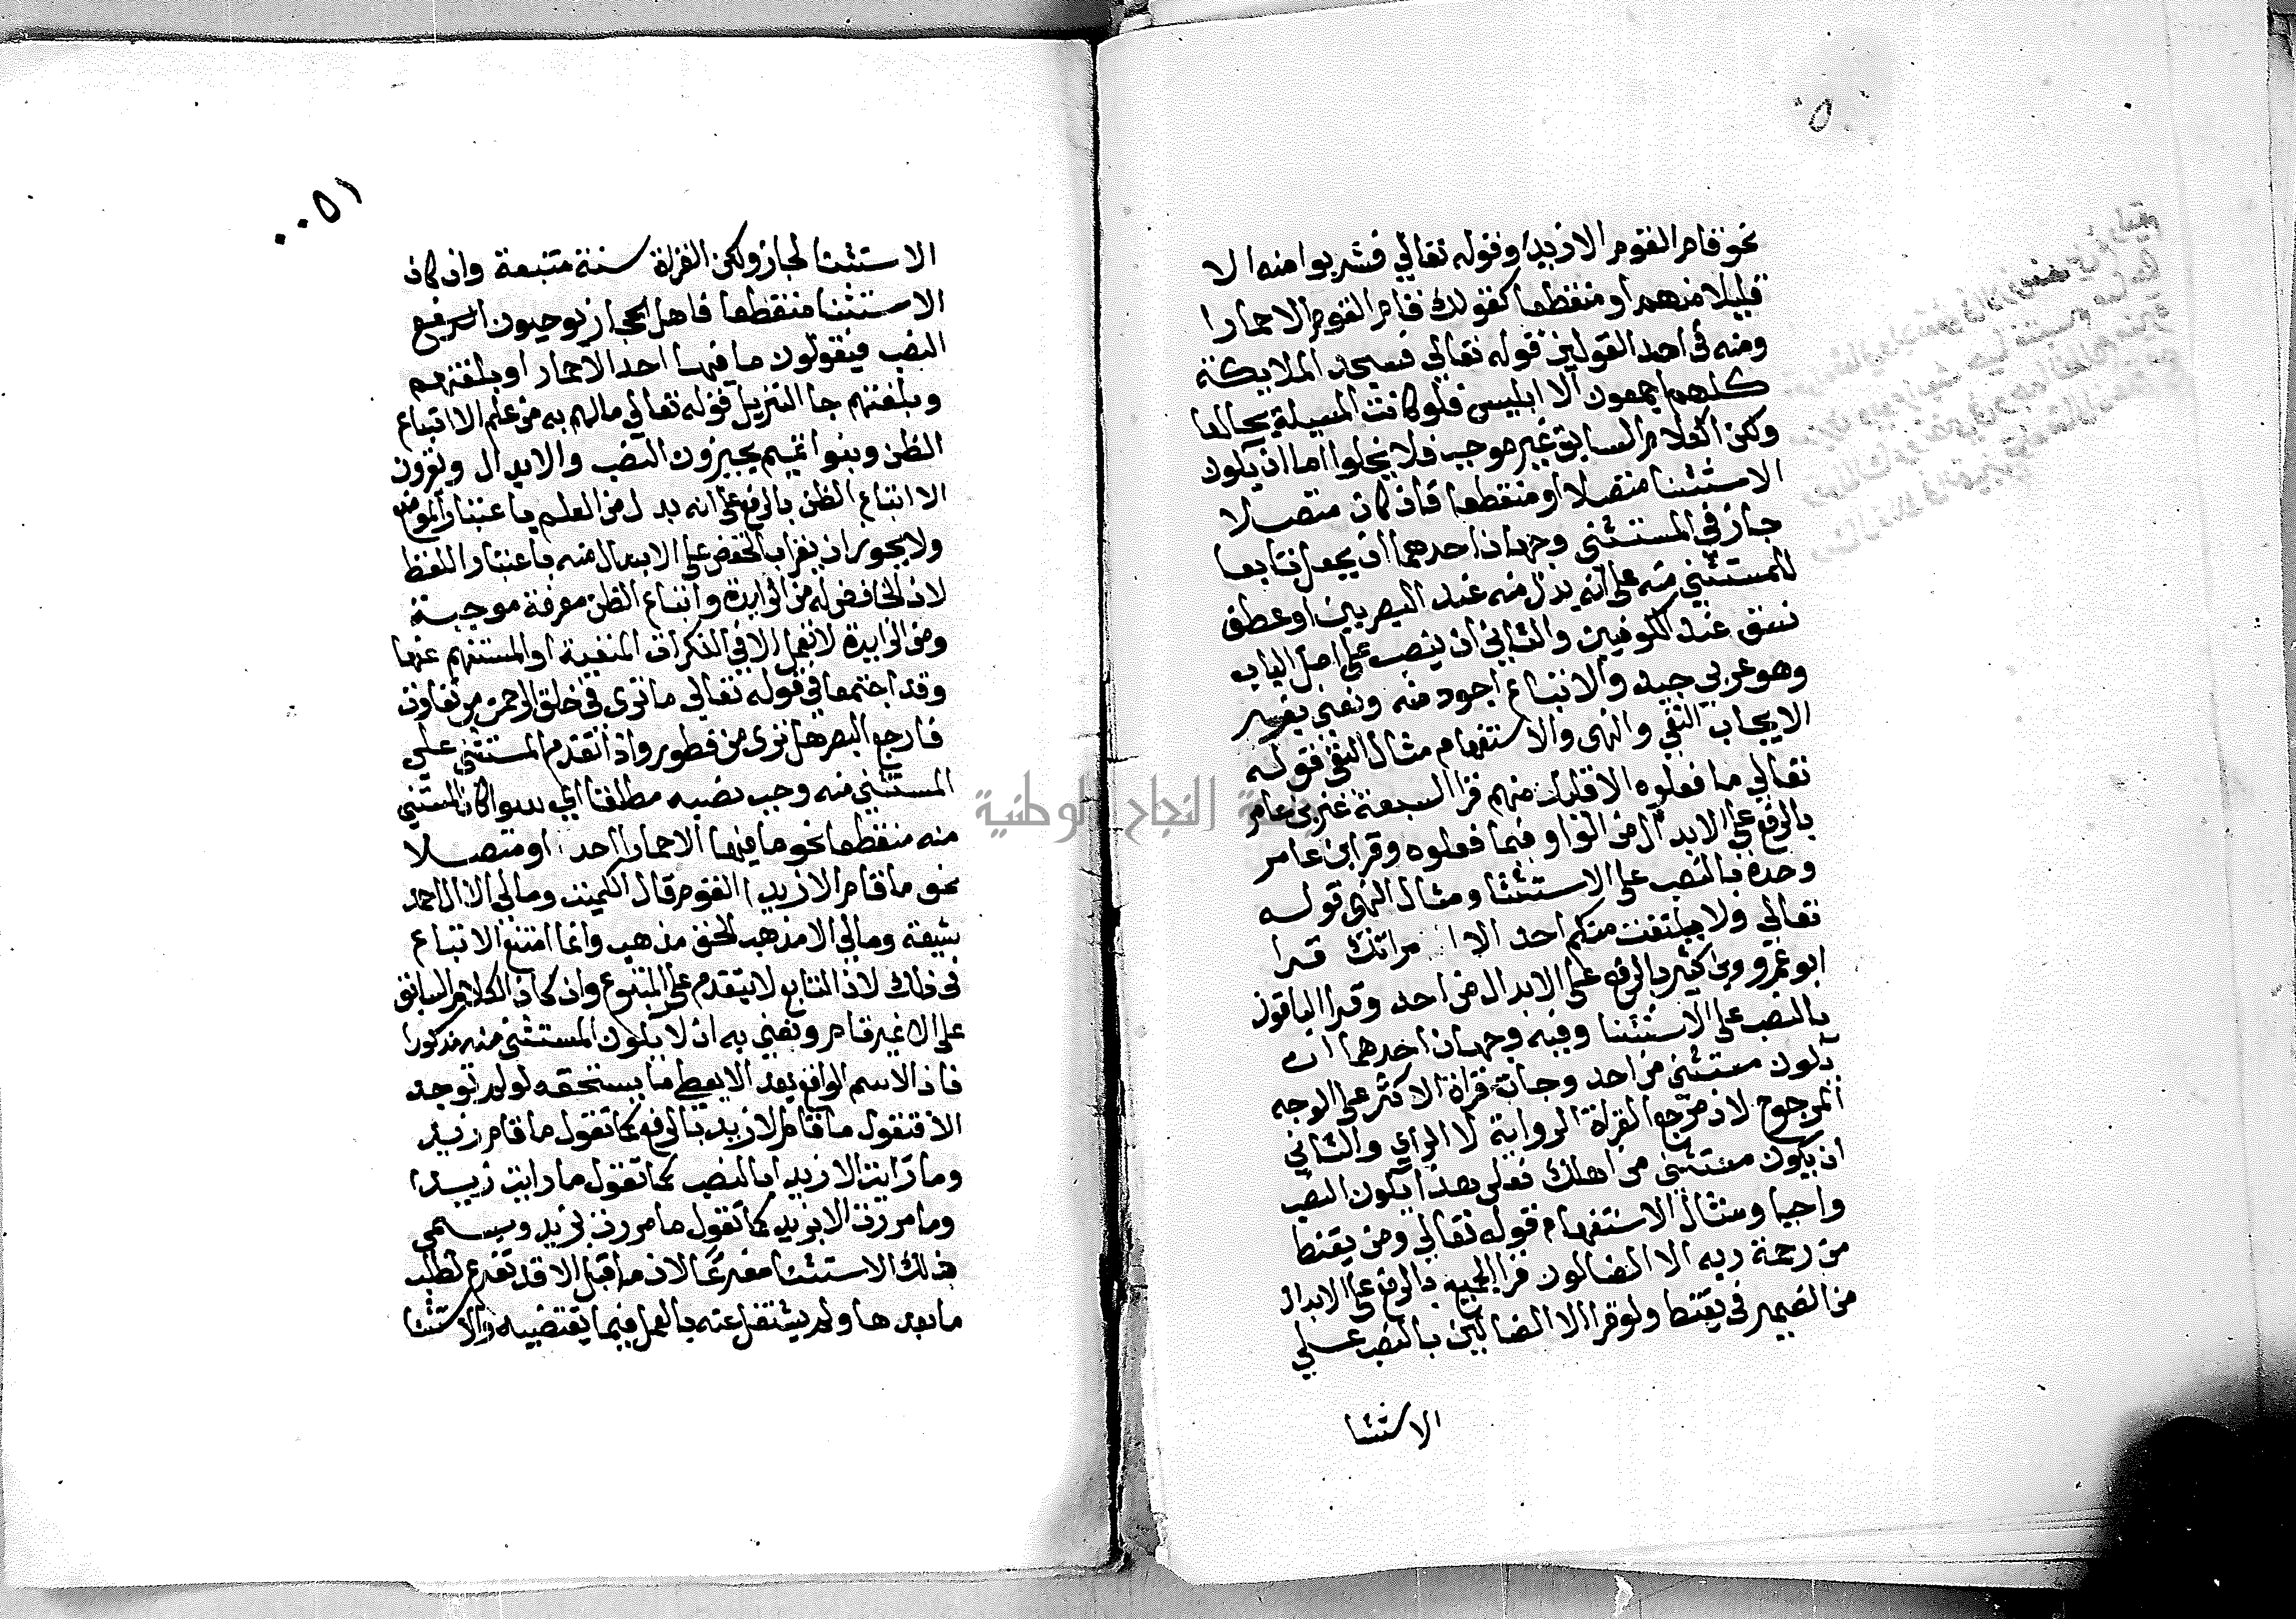 نحو قام القوم الا زيدا وقوله تعالي فشربوا منه الا
قليلا منهم او منقطعا كقولك قام القوم الا حمارا
ومنه في احد القولين قوله تعالي فسجد الملايكة
كلهم اجمعون الا ابليس فلو كانت المسيلة بحالها
ولكن الكلام السابق غير موجب فلا يخلوا اما ان يكون
الاستثنا متصلا او منقطعا فان كان متصلا
جاز في المستثني وجهان احدهما ان يجعل تابعا
للمستثني منه علي انه بدل منه عند البصريين او عطف
نسق عند الكوفيين والثاني ان ينصب علي اصل الباب
وهو عربي جيد والاتباع اجود منه ونعني بغير
الايجاب النفي والنهي والاستفهام مثال النفي قوله
تعالي ما فعلوه الا قليل منهم قرا السبعة غير بن عامر
بالرفع علي الابدال من الواو فيما فعلوه وقرا بن عامر
وحده بالنصب علي الاستثنا ومثال النهي قوله
تعالي ولا يلتفت منكم احد الا امراتك قرا
ابو عمرو وبن كثير بالرفع علي الابدال من احد وقرا الباقون
بالنصب علي الاستثنا وفيه وجهان احدهما ان
يكون مستثني من احد وجات قراة الاكثر علي الوجه
المرجوح لان مرجع القراة الرواية لا الراي والثاني
ان يكون مستثني من اهلك فعلي هذا يكون النصب
واجبا ومثال الاستفهام قوله تعالي ومن يقنط
من رحمة ربه الا الضالون قرا الجميع بالرفع علي الابدال
من الضمير في يقنط ولو قرا الا الضالين بالنصب علي
الاستثنا
٥١
الاستثنا لجاز ولكن القراة سنة متبعة وان كان
الاستثنا منقطعا فاهل الحجاز يوجبون
النصب فيقولون ما فيها احد الا حمارا وبلغتهم
وبلغتهم جا التنزيل قوله تعالي ما لهم به من علم الا اتباع
الظن وبنوا تميم يجيزون النصب والابدال ويقرون
الا اتباع الظن بالرفع علي انه بدل من العلم باعتبار الموضع
ولا يجوز ان يقرا بالخفض علي الابدال منه باعتبار اللفظ
لان الخافض له من الزايدة واتباع الظن معرفة موجبة
ومن الزايدة لا تعمل الا في النكرات المنفية او المستفهم عنها
وقد اجتمعا في قوله تعالي ما تري في خلق الرحمن من تفاوت
فارجع البصر هل تري من فطور واذا تقدم المستثني علي
المستثني منه وجب نصبه مطلقا اي سوا كان المستثني
منه منقطعا نحو ما فيها الا حمارا احد او متصلا
نحو ما قام الا زيدا القوم قال الكميت ومالي الا ال احمد
شيعة ومالي الا مذهب الحق مذهب وانما امتنع الاتباع
في ذلك لان التابع لا يتقدم علي المتبوع وان كان الكلام السابق
علي الا غير تام ونعني به ان لا يكون المستثني منه مذكورا
فان الاسم الواقع بعد الا يعطي ما يستحقه لو لم توجد
الا فتقول ما قام الا زيد بالرفع كما تقول ما قام زيد
وما رايت الا زيدا بالنصب كما تقول ما رايت زيدا
وما مررت الا بزيد كما تقول ما مررت بزيد ويسمي
ذلك الاستثنا مفرغا لان ما قبل الا قد تفرغ لطلب
ما بعدها ولم يشتغل عنه بالعمل فيما يقتضيه والاستثنا
النجاح الوطنية